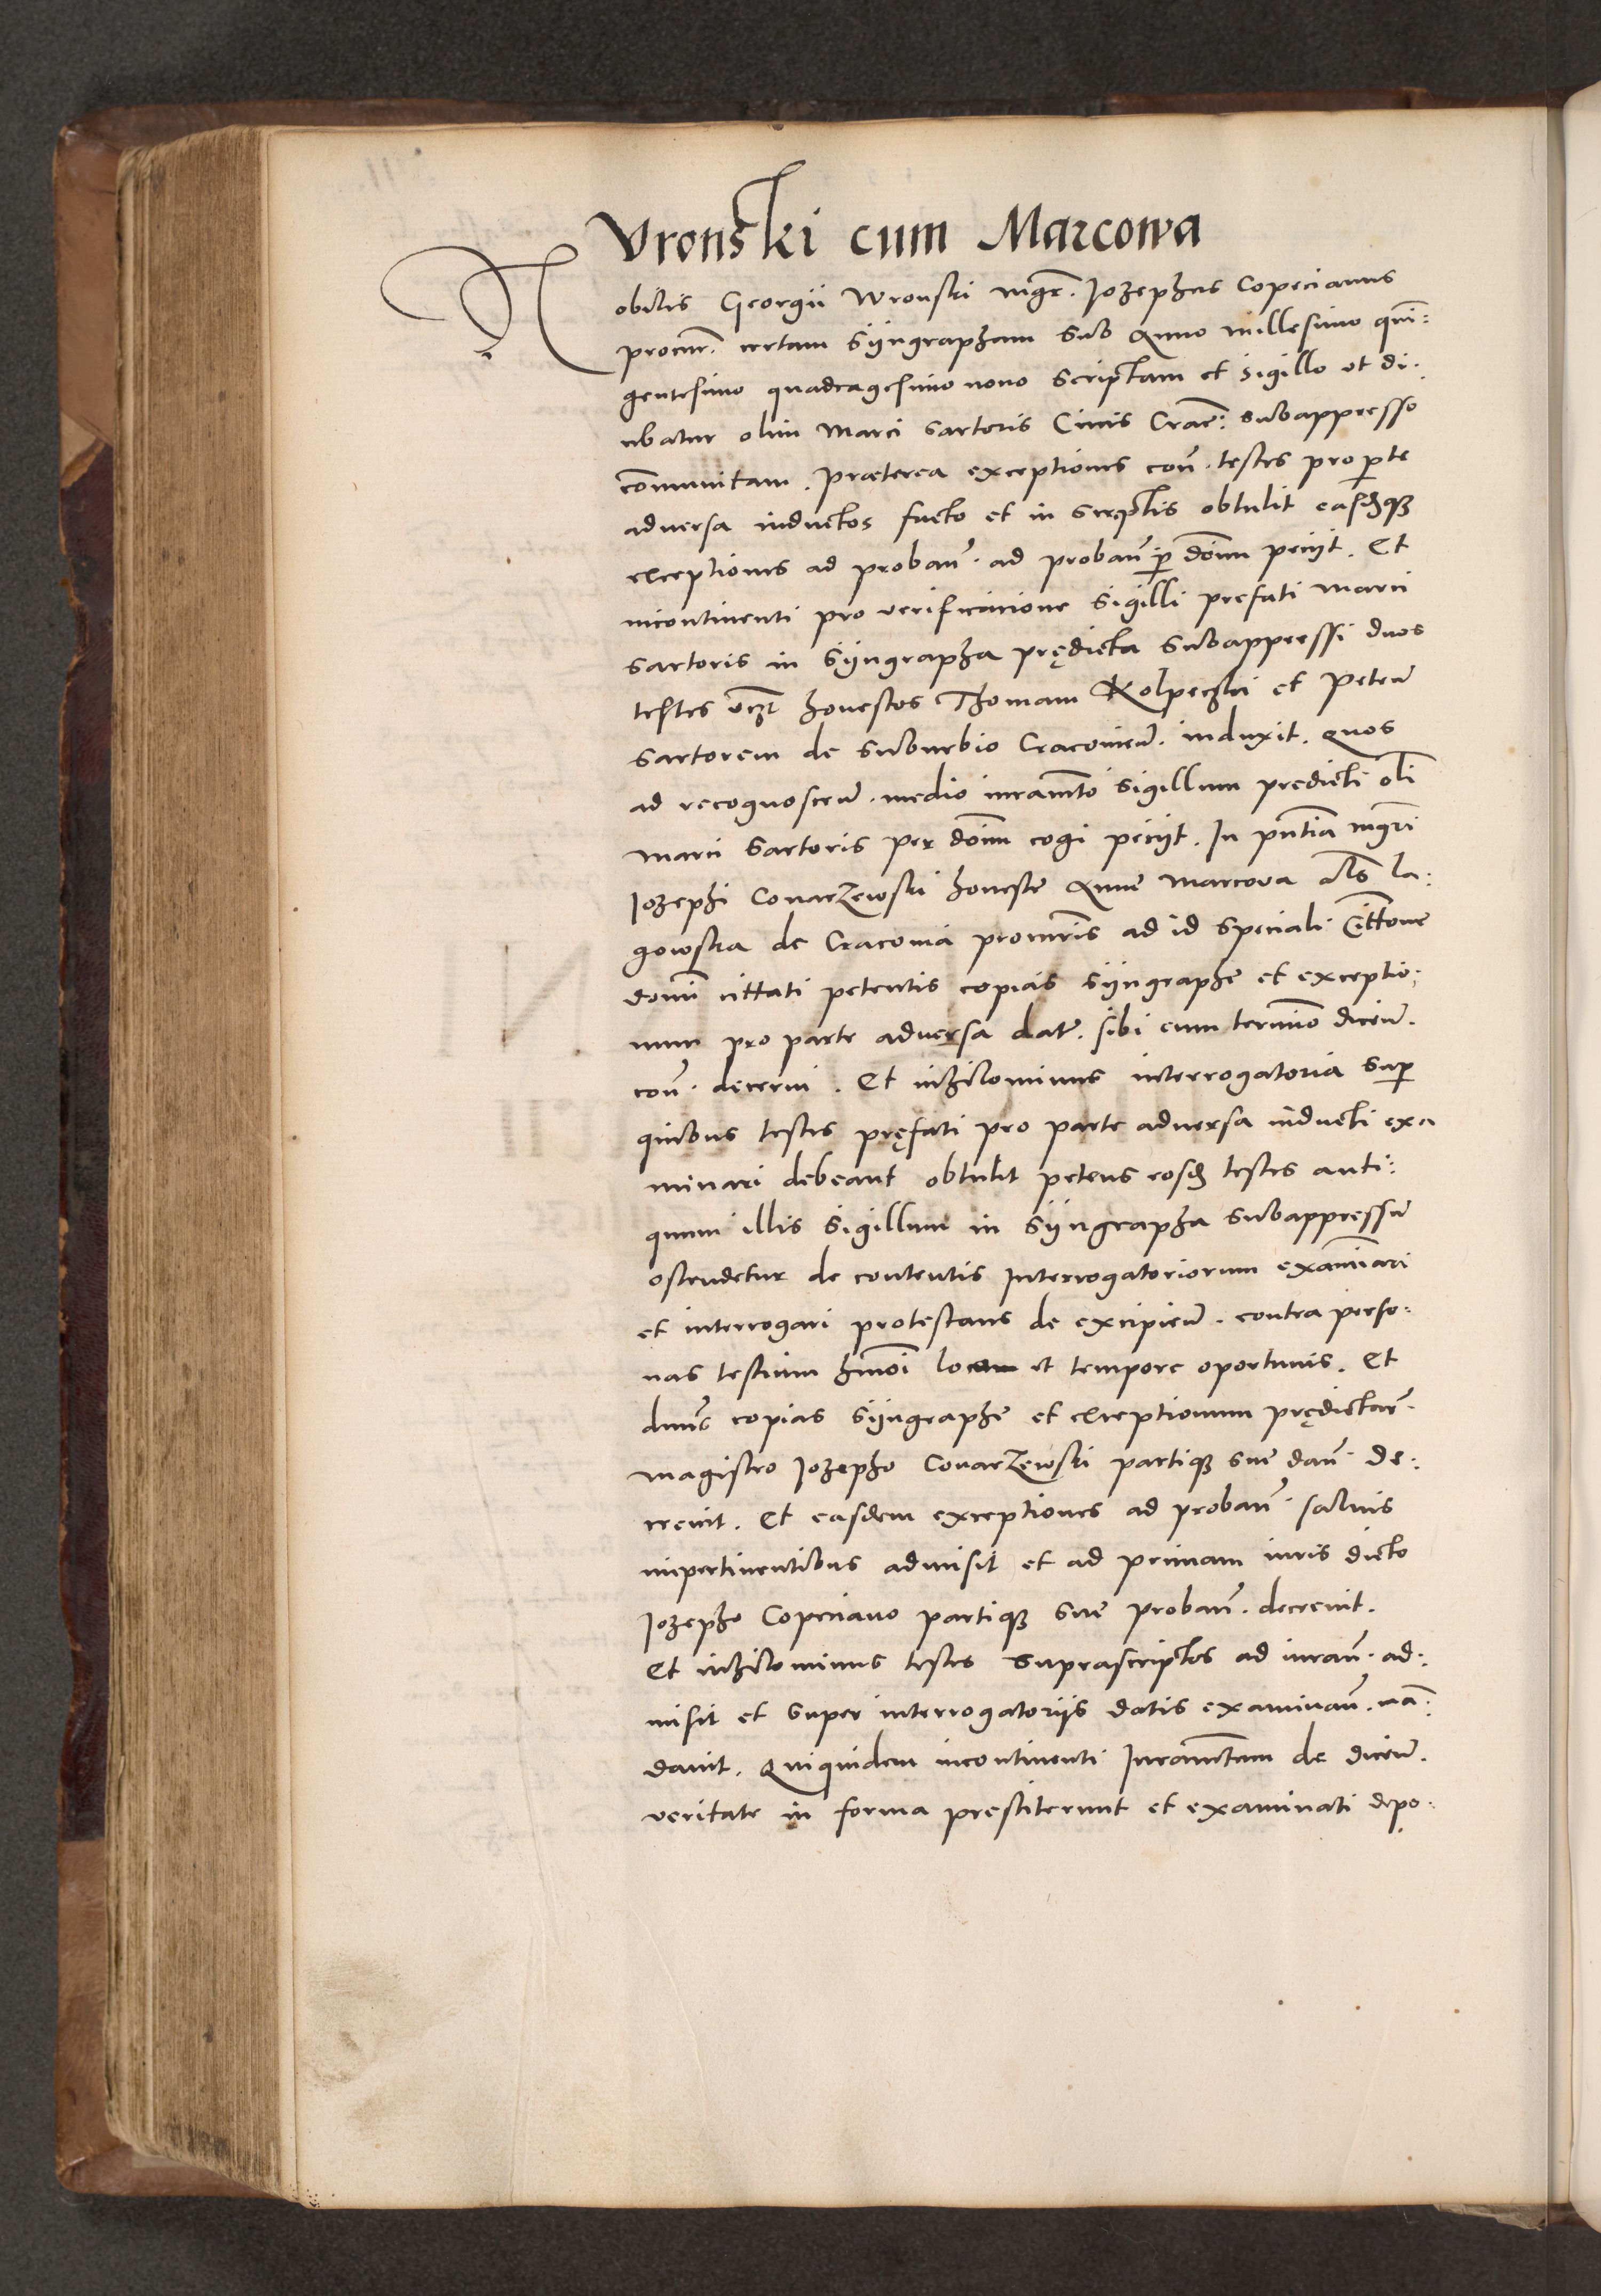 Vronski cum Marcowa
Nobilis Georgii Wronski mgr̄. Jozephus Copecianus
procur̄. certam Syngrapham sub Anno millesimo quī:
gentesimo quadragesimo nono scriptam et sigillo ut di:
cebatur olim Marci sartoris Civis Crac̄: subappresso
cōmunitam. Præterea exceptiones coñ. testes pro pte
adversa inductos facto et in scriptis obtulit easdq̃
exceptiones ad probañ. ad probañ p̄ dōnm peciit. Et
incontinenti pro verificacione Sigilli prefati Marci
sartoris in Syngrapha prędicta subappressi duos
testes vcz̄t honestos Thomam Kolpeczki et Petrū
sartorem de suburbio Cracovień. induxit. Quos
ad recognoscēñ. medio iuramto sigillum predicti oli
Marci Sartoris per dōnm cogi peciit. In pn̄tia mgr̄i
Jozephi Covarzewski honeste Anne Marcova als̄ la:
gowska de Cracovia procuris ad id speciali Cittone
domi cittati petentis copias syngraphe et exceptio:
num pro parte adversa datē. sibi cum termino diceñ.
coñ. decerni. Et nihilominus interrogatoria sup̄
quibus testes pręfati pro parte adversa inducti exa
minari debeant obtulit petens eosd̄ testes anti:
quam illis Sigillum in Syngrapha subappressū
ostendetur de contentis Interrogatoriorum examinari
et interrogari protestans de excipieñ. contra perso:
nas testium hmōi loco et tempore oportunis. Et
dn̄us copias syngraphe et exceptionum prędictar̄.
magistro Jozepho Covarzewski partiq̃ sue dañ. de:
crevit. Et easdem exceptiones ad probañ. salvis
impertinentibus admisit et ad primam iuris dicto
Jozepho Copeciano partiq̃ sue probañ. decrevit.
Et nihilominus testes suprascriptos ad iurañ. ad:
misit et super interrogatoriis datis examinañ. mā:
davit. Quiquidem incontinenti Juramtum de diceñ.
veritate in forma prestiterunt et examinati depo: